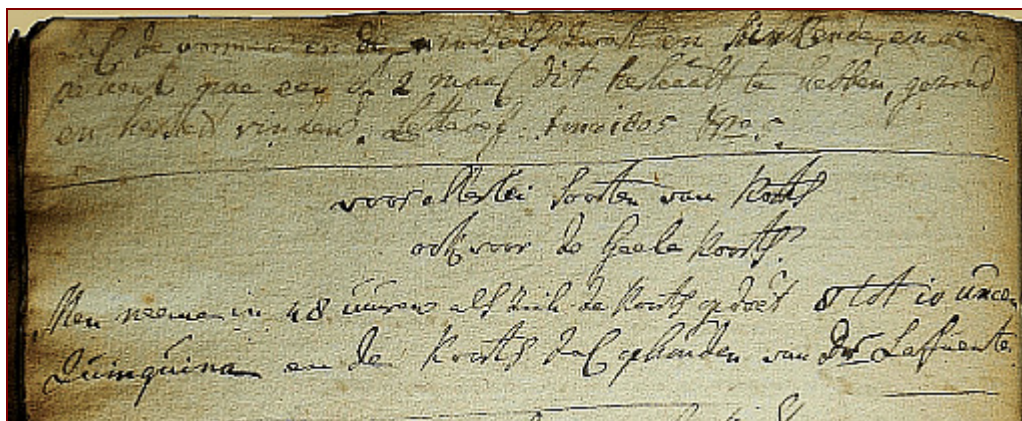 zal de wormen en de winden zwart en stinkende, en de
patient nae een of 2 maal dit herhaalt te hebben, gezond
en hersteld vinden. Letterb: 1805
voor allerlei soorten van koorts
ook voor de Geele koorts.
Men neeme in 48 uuren als zich de koorts opdoet 8 tot 10 uncen
Quinquina en de koorts zal ophouden van Dr Laffuente